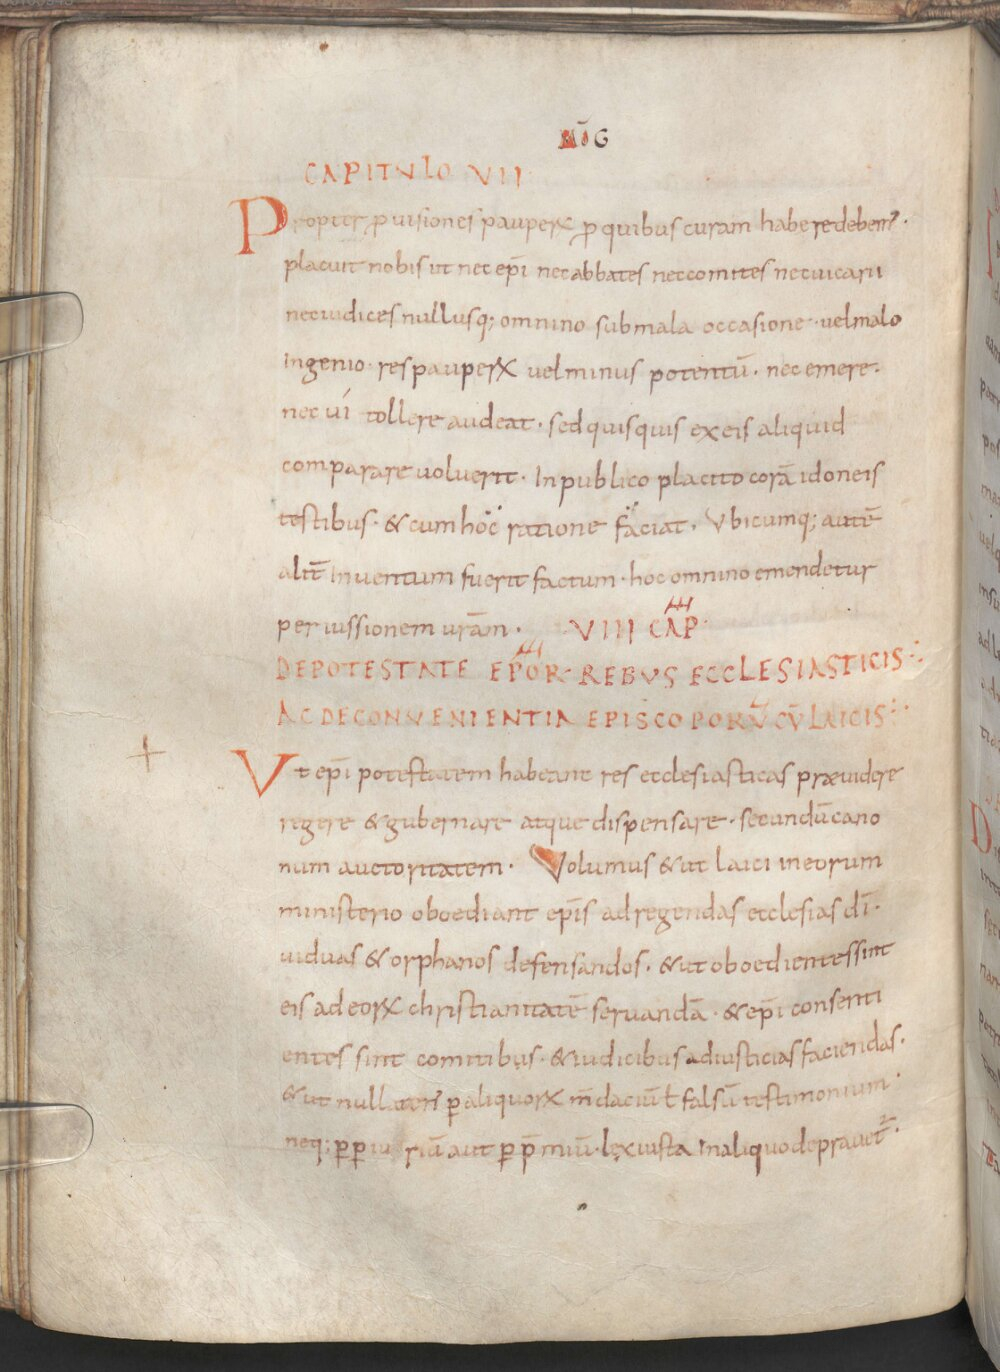 CAPITULO VII
Propter ꝓuisiones pauperꝝ ꝓ quibus curam habere debemꝰ.
placuit nobis ut nec ep̄i nec abbates nec comites nec uicarii
nec iudices nullusq; omnino sub mala occasione · uel malo
Ingenio · res pauperꝝ uel minus potentū · nec emere ·
nec ui tollere audeat · sed quisquis ex eis aliquid
comparare uoluerit · In publico placito corā idoneis
testibus · & cum hoc ratione faciat. Vbicumq; autē
alit̄ Inuentum fuerit factum · hoc omnino emendetur
per iussionem urām · VIII CAP
DE POTESTATE EPOR REBUS ECCLESIASTICIS
AC DE CONVENIENTIA EPISCOPORŪ CŪ LAICIS
Vt ep̄i potestatem habeant res ecclesiasticas præuidere
regere & gubernare atque dispensare · secundū cano
num auctoritatem · Volumus & ut laici in eorum
ministerio oboediant ep̄is ad regendas ecclesias dī ·
uiduas & orphanos defensandos · & ut oboedientes sint
eis ad eorꝝ christianitatē seruandā · & ep̄i consenti
entes sint comitibus · & iudicibus ad iusticias faciendas ·
& ut nullatenꝰ ꝑ aliquorꝝ m̄daciū ł falsū testimonium ·
neq; ꝑ ꝑiuriū aut ꝑ p̄miū · lex iusta In aliquo deprauet᷑ ·